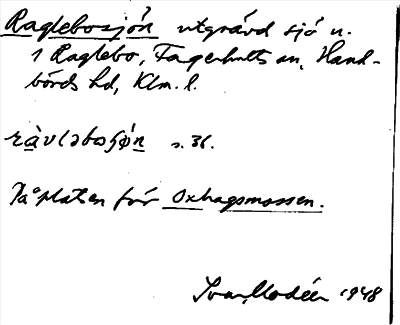 Raglebosjön utgrävd sjö n.
1 Raglebo, Fagerhults sn, Hand-
börds hd, Klm. l.
s. 36.
På platsen för Oxhagsmossen.
Ivar Modéer 1948